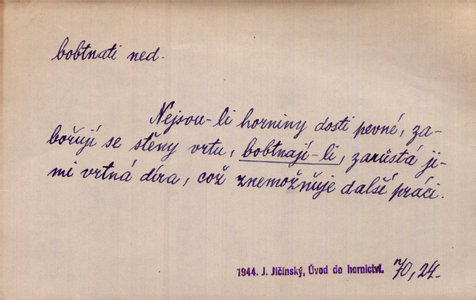 bobtnati ned.
Nejsou-li horniny dosti pevné, za-
bořují se stěny vrtu, bobtnají-li, zarůstá ji-
mi vrtná díra, což znemožňuje další práci.
1944. J. Jičínský, Úvod do hornictví. 70, 24.